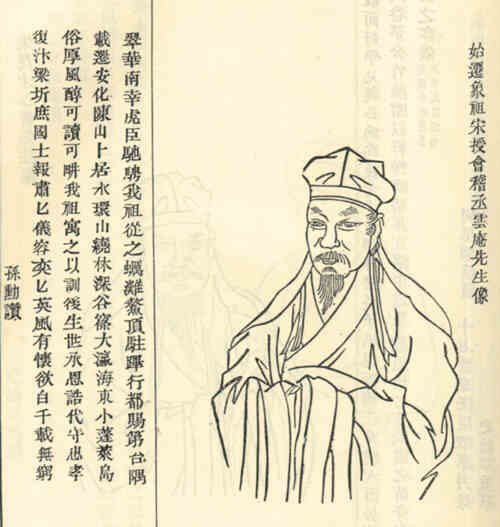 始遷象祖宋授會稽丞雲庵先生像
翠華南幸虎臣馳騁我祖從之蠣灘鰲頂駐蹕行都賜第台隅
載遷安化陳山卜居水環山繞林深谷大瀛海東小蓬萊島
俗厚風醇可讀可畊我祖寓之以訓後生世承恩誥代守忠孝
復汴梁圻庶國士報肅匕儀容奕匕英風有懷欲白千載無窮
孫勳讚